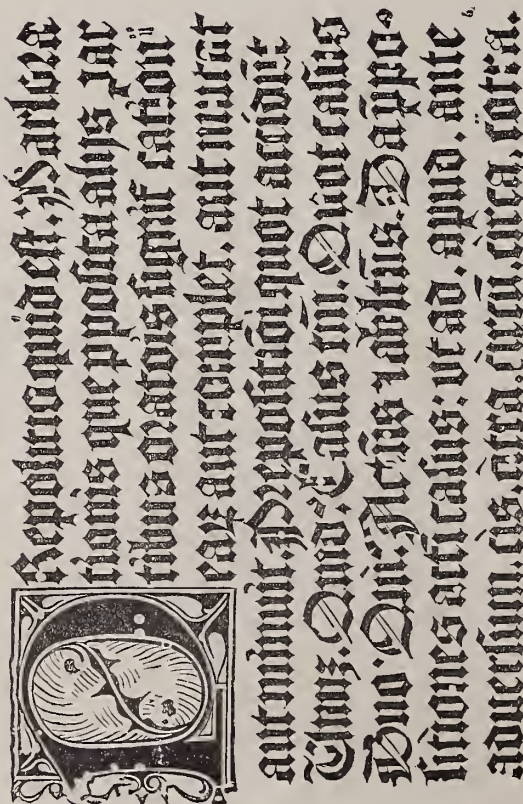 PRepoſitio quid eſt. Pars ora
tionis que p̄poſita alijs par
tibus oratōis ſignifi cation̄
eaꝝ aut cōplet. aut mutat
aut minuit. Prepoſitiōi quot accidūt
Unuꝫ. Quid. Caſus tm̄. Quot caſus
Duo. Qui. Actūs ⁊ ablt̄us. Da p̄po-
ſitiones acti caſus: ut ad. apud. ante
aduerſum. cis. citra. circū. circa. cōtra.